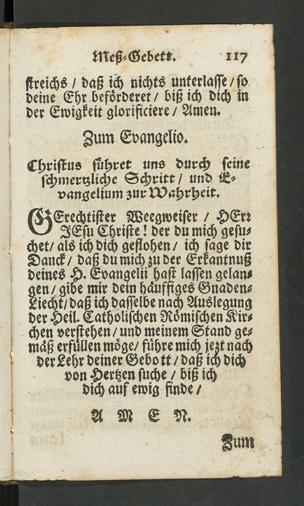 Meß-Gebett. 117
streichs / daß ich nichts unterlasse / so
deine Ehr beförderet / biß ich dich in
der Ewigkeit glorificiere / Amen.
Zum Evangelio.
Christus führet uns durch seine
schmertzliche Schritt / und E-
vangelium zur Wahrheit.
GErechtister Weegweiser / HErr
JEsu Christe! der du mich gesu-
chet / als ich dich geflohen / ich sage dir
Danck / daß du mich zu der Erkantnuß
deines H. Evangelii hast lassen gelan-
gen / gibe mir dein häuffiges Gnaden-
Liecht / daß ich dasselbe nach Auslegung
der Heil. Catholischen Römischen Kir-
chen verstehen / und meinem Stand ge-
mäß erfüllen möge / führe mich jezt nach
der Lehr deiner Gebott / daß ich dich
von Hertzen suche / biß ich
dich auf ewig finde /
A M E N.
Zum